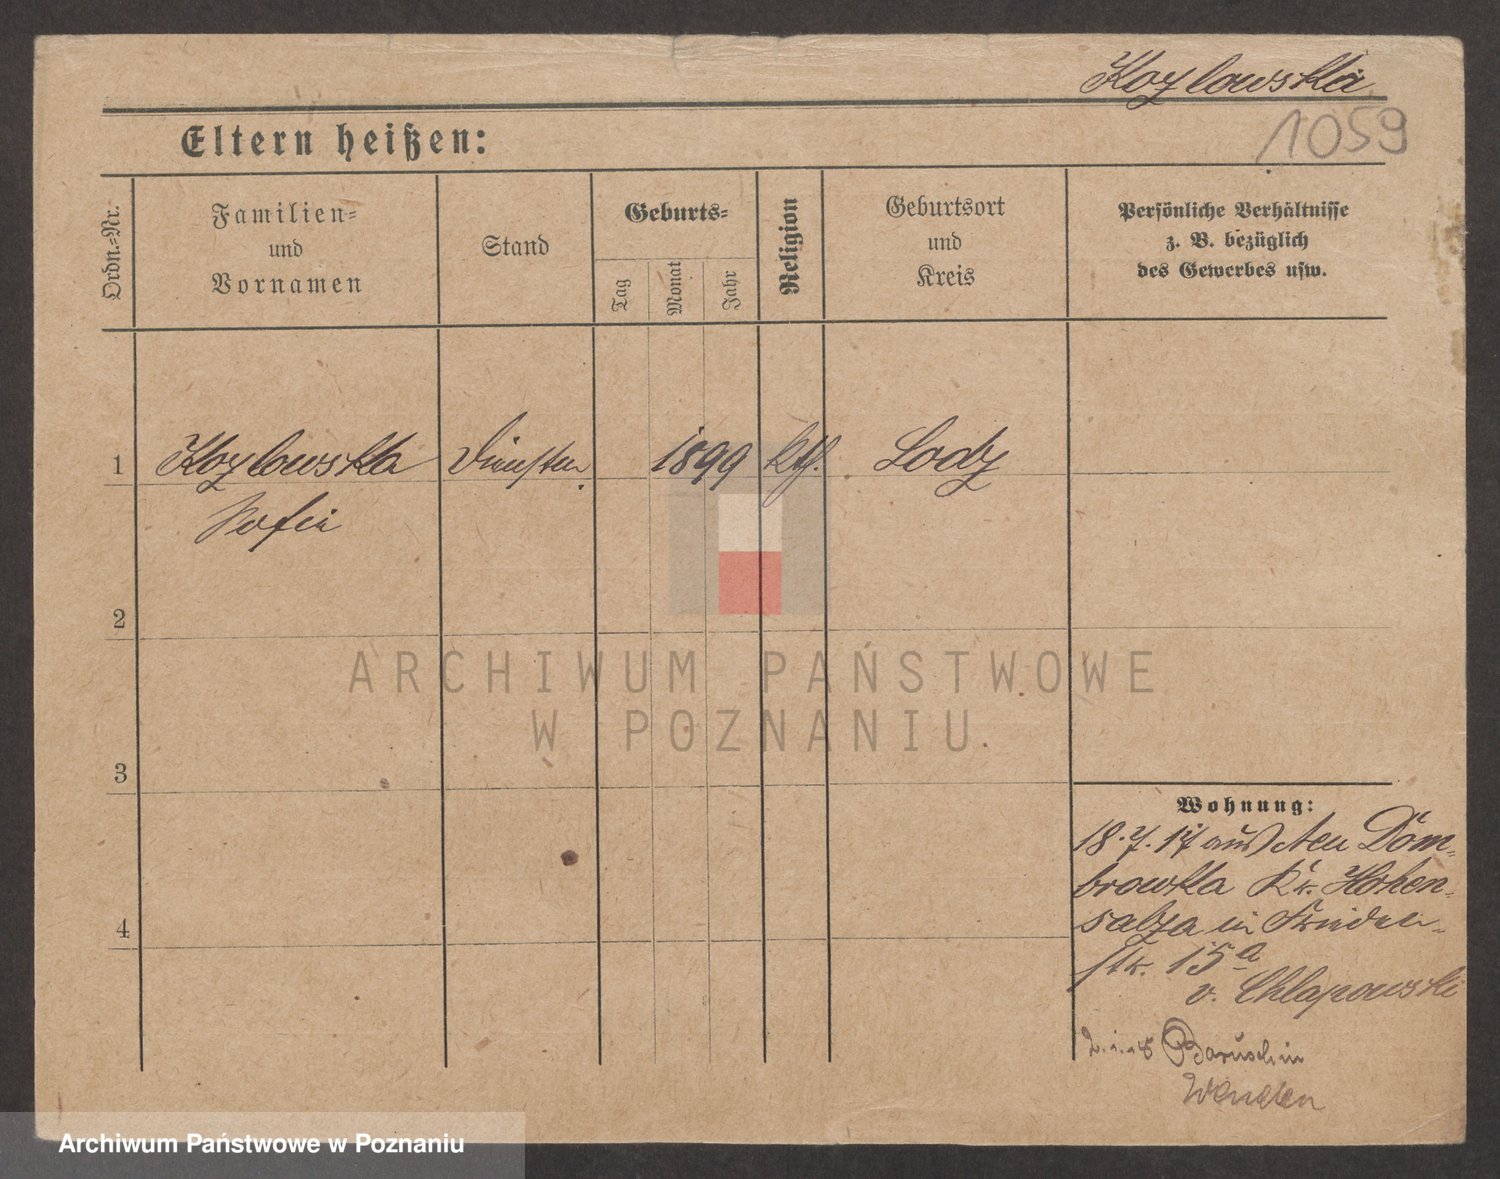 Kozlowska
1059
Eltern heißen:
Ordn.-Nr.
Familien-
und
Vornamen
Stand
Geburts-
Tag
Monat
Jahr
Religion
Geburtsort
und
Kreis
Persönliche Verhältnisse
z. B. bezüglich
des Gewerbes usw.
1
Kozlowska
Sofia
1899
kth.
Lodz
2
3
4
Wohnung:
18.7.17 aus Dom-
browka Kr. Hohen-
salza in Frieden-
str. 15a
v. Chlapowski
ARCHIWUM PAŃSTWOWE
W POZNANIU
Archiwum Państwowe w Poznaniu